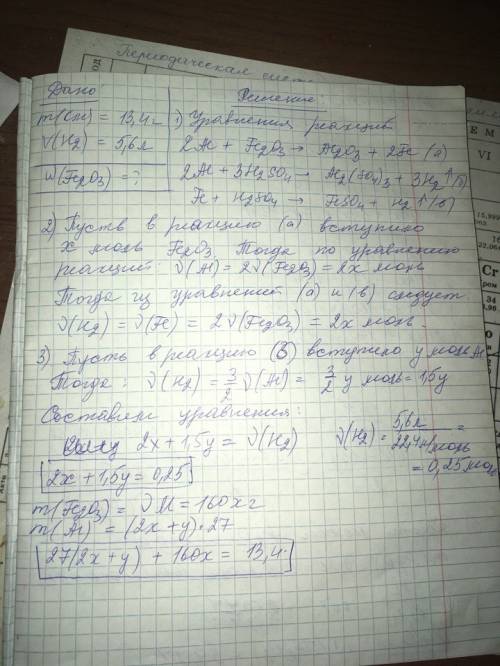 Периодическая систе
Дано:
Решение
m(см) = 13,4 г
V(H₂) = 5,6 л
w(Fe₂O₃) = ?
1) Уравнения реакций
2Al + Fe₂O₃ → Al₂O₃ + 2Fe (а)
2Al + 3H₂SO₄ → Al₂(SO₄)₃ + 3H₂↑ (б)
Fe + H₂SO₄ → FeSO₄ + H₂↑ (в)
2) Пусть в реакцию (а) вступило
x моль Fe₂O₃. Тогда по уравнению
реакции: ν(Al) = 2ν(Fe₂O₃) = 2x моль
Тогда из уравнений (а) и (в) следует
ν(H₂) = ν(Fe) = 2ν(Fe₂O₃) = 2x моль
3) Пусть в реакцию (б) вступило y моль Al
Тогда: ν(H₂) = 3/2 ν(Al) = 3/2 y моль = 1,5y
Составляем уравнения:
2x + 1,5y = ν(H₂)
ν(H₂) = 5,6л / 22,4л/моль =
= 0,25 моль
2x + 1,5y = 0,25
m(Fe₂O₃) = νM = 160x г
m(Al) = (2x + y)·27
27(2x + y) + 160x = 13,4
Е М
VI
15,999
Cr
ром